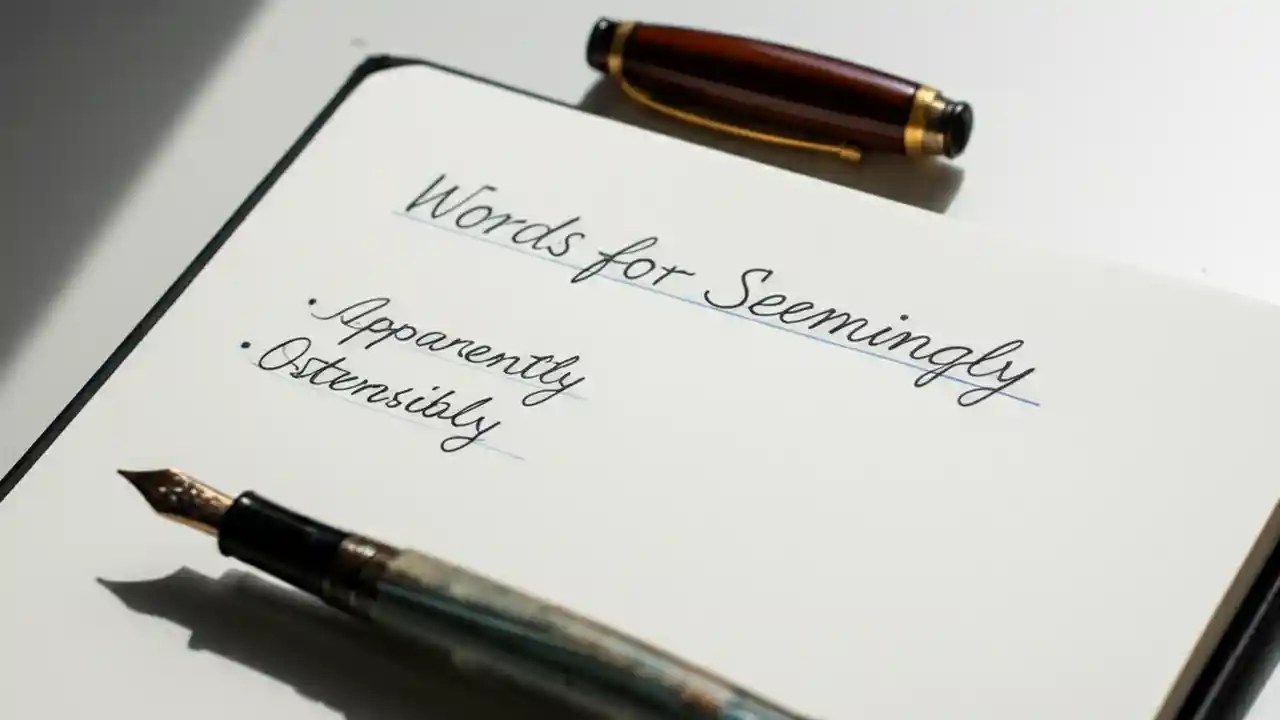 Words for Seemingly
• Apparently
• Ostensibly